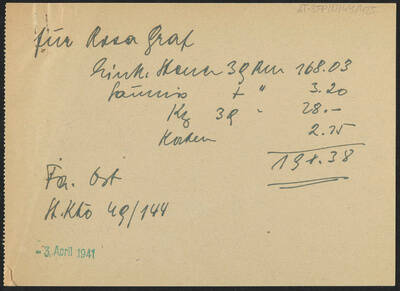 für Rosa Graf
Eink. Steuer 3Q RM 168.03
Säumnis + " 3.20
Kg 3Q " 28.-
Kosten 2.75
198.38
Fa. Ost
St. Kto 49/144
-3. April 1941